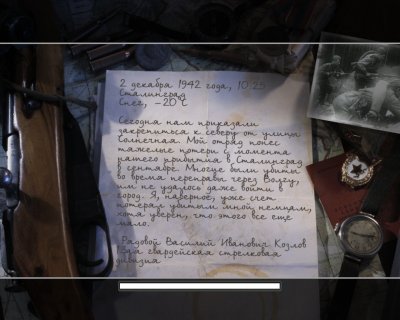 2 декабря 1942 года, 10:25
Сталинград
Снег, -20 С
Сегодня нам приказали
закрепиться к северу от улицы
Солнечная. Мой отряд понес
тяжелые потери с момента
нашего прибытия в Сталинград
в сентябре. Многие были убиты
во время переправы через Волгу,
им не удалось даже войти в
город. Я, наверное, уже счет
потерял убитым мной немцам,
хотя уверен, что этого все еще
мало.
Рядовой Василий Иванович Козлов
гвардейская стрелковая
дивизия